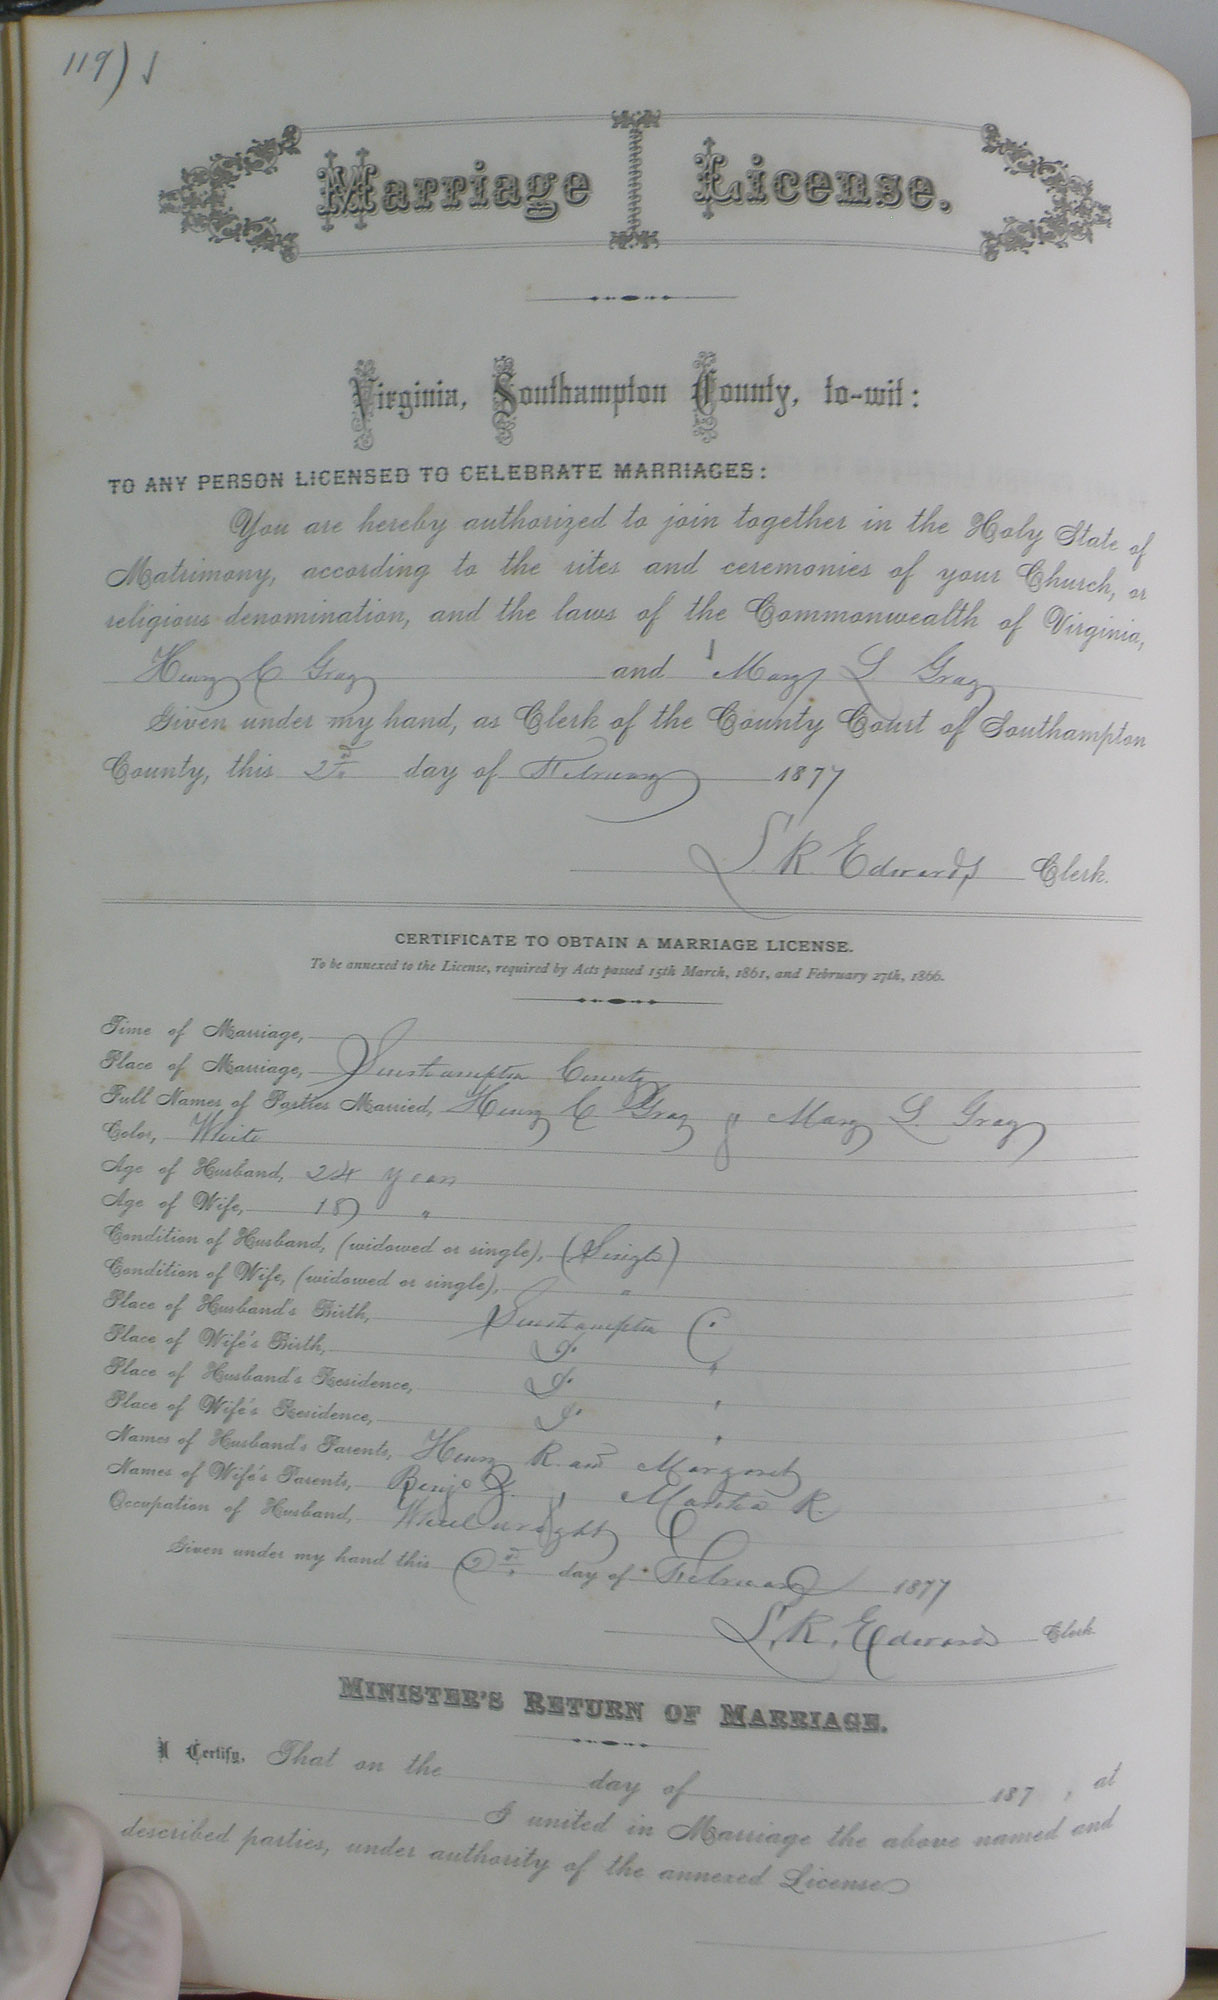 119)
Marriage License.
Virginia, Southampton County, to-wit:
TO ANY PERSON LICENSED TO CELEBRATE MARRIAGES:
You are hereby authorized to join together in the Holy State of
Matrimony, according to the rites and ceremonies of your Church, or
religious denomination, and the laws of the Commonwealth of Virginia,
Henry C Gray and Mary L Gray
Given under my hand, as Clerk of the County Court of Southampton
County, this 2nd day of February 1877
L. R. Edwards Clerk.
CERTIFICATE TO OBTAIN A MARRIAGE LICENSE.
To be annexed to the License, required by Acts passed 15th March, 1861, and February 27th, 1866.
Time of Marriage,
Place of Marriage, Southampton County
Full Names of Parties Married, Henry C Gray & Mary L. Gray
Color, White
Age of Husband, 24 years
Age of Wife, 18 "
Condition of Husband, (widowed or single), (Single)
Condition of Wife, (widowed or single), "
Place of Husband's Birth, Southampton C.
Place of Wife's Birth, Do "
Place of Husband's Residence, Do "
Place of Wife's Residence, Do "
Names of Husband's Parents, Henry R. and Margaret
Names of Wife's Parents, Benj. " Martha R.
Occupation of Husband, Wheelwright
Given under my hand this 2nd day of February 1877
L. R. Edwards Clerk.
MINISTER'S RETURN OF MARRIAGE.
I Certify, That on the day of 187 , at
I united in Marriage the above named and
described parties, under authority of the annexed License